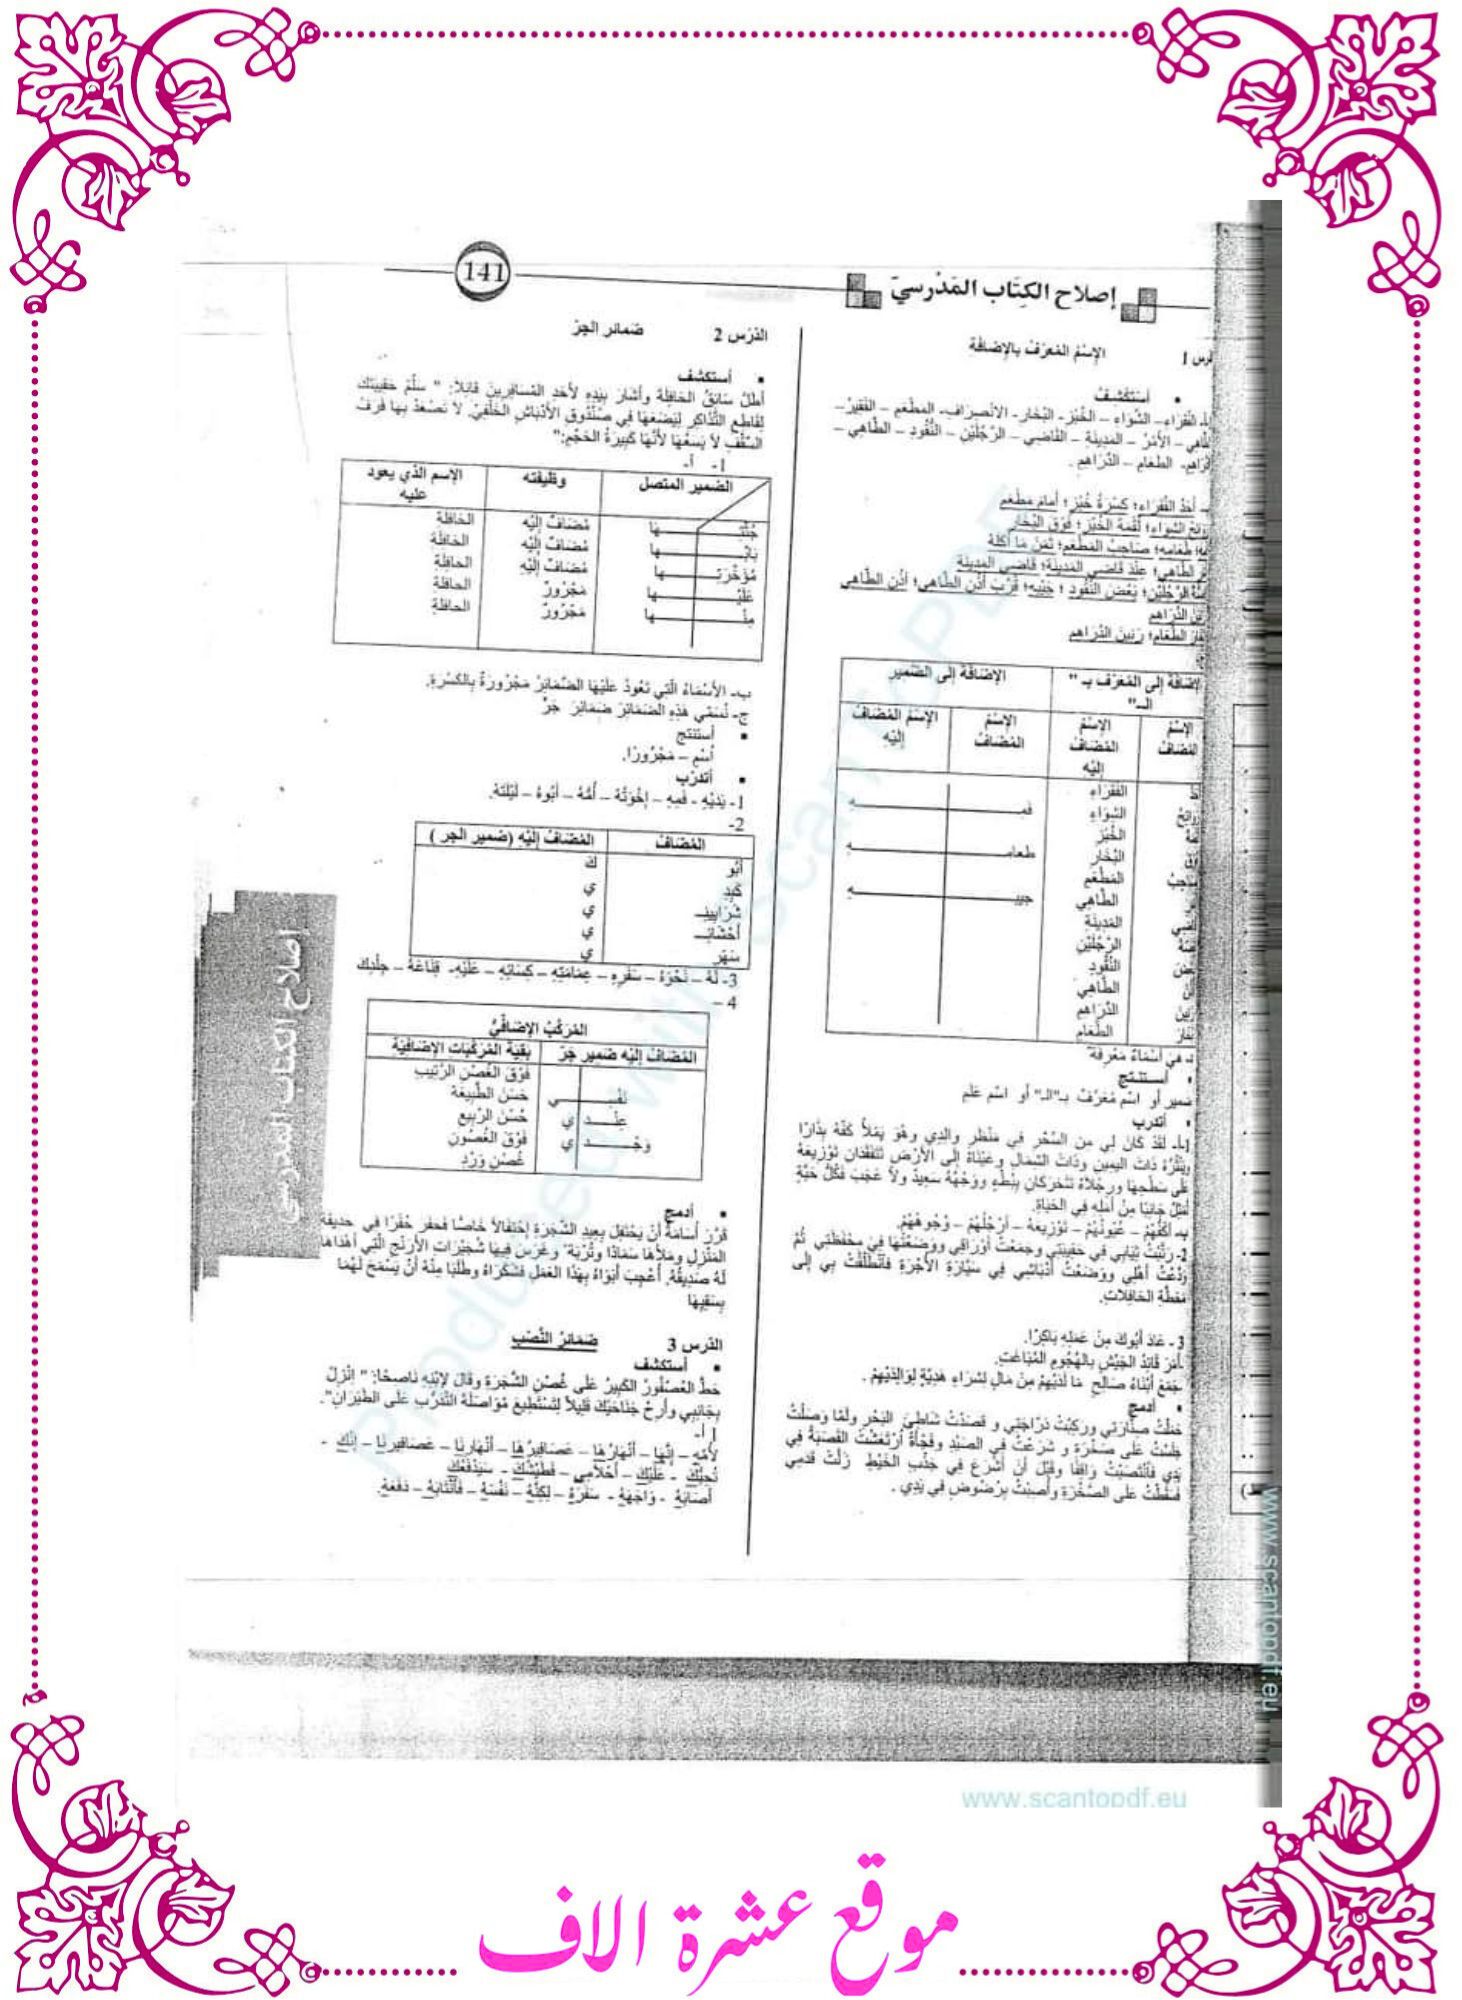 141
إصلاح الكِتَاب المَدْرسيّ
الإسْمُ المُعَرّفُ بالإضافة
أستكشف
الفُقراء – الشّواء – الخُبْز – البُخار – الانْصِراف – المطعم – الفقير –
الأمْرُ – المدينة – القاضي – الرّجُلَيْن – النُّقُود – الطّاهي –
الطعام – الدّراهم .
أحَدُ الفُقَراء؛ كِسْرَةُ خُبْزٍ؛ أمامَ مَطعَم
الشّواء؛ لُقْمَةُ الخُبْز؛ فَوْقَ البُخار
طعامِهِ؛ صاحبُ المَطعم؛ ثَمَنَ مَا أكَلَهُ
الطّاهي؛ عِنْدَ قاضي المَدينَة؛ قاضي المَدينَة
الرّجُلَيْن؛ بَعْضَ النُّقُود ؛ جَيْبِهِ؛ قُرْبَ أذُنِ الطّاهي؛ أذُنِ الطّاهي
الدّرَاهِم
الطّعَام؛ رَنينَ الدّرَاهِم
الإضَافَة إلى الضّمير
الإضافَة إلى المُعَرّف بـ " الـ"
الإسْمُ المُضَاف
الإسْمُ المُضَافُ إليْهِ
الإسْمُ المُضَافُ
الإسْمُ المُضَافُ إلَيْهِ
الفُقَراءِ
فَمِـ ـهِ
رَوَائِحُ الشّوَاءِ
الخُبْز
طَعامِـ ـهِ
البُخَار
صَاحِبُ المَطْعَم
جَيْبِـ ـهِ
الطّاهي
المَدِينَة
الرّجُلَيْن
النّقُودِ
الطّاهِي
رَنِينَ الدّرَاهِم
الطّعَام
هِيَ أسْمَاءٌ مَعْرِفَة
أستنتج
ضمير أو اسْم مُعَرّف بـ"الـ" أو اسْم عَلَم
أتدرب
لَقَدْ كَانَ لِي مِن السّحْر فِي مَنْظَر وَالِدِي وهُوَ يَمْلأُ كَفّهُ بِذَارًا
ويَنْثُرُهُ ذاتَ اليَمِين وذَاتَ الشّمَال وعَيْنَاهُ إلَى الأرْض تَتَفَقّدَان تَوْزِيعَهُ
عَلَى سَطْحِهَا ورجْلاَهُ تَتَحَرّكَان بِبُطْءٍ ووَجْهُهُ سَعِيدٌ ولاَ عَجَبَ فَكُلّ حَبّةٍ
تُمَثّلُ جَانِبًا مِنْ أمَلِهِ فِي الحَيَاة.
ب- أكُفّهُمْ – عُيُونُهُمْ – تَوْزِيعَهُ – أرْجُلُهُمْ – وُجُوهُهُمْ.
2- رَتّبْتُ ثِيَابِي فِي حَقِيبَتِي وجَمَعْتُ أوْرَاقِي ووَضَعْتُهَا فِي مِحْفَظَتِي ثُمّ
وَدّعْتُ أهْلِي ووَضَعْتُ أدْبَاشِي فِي سَيّارَةِ الأجْرَة فَانْطَلَقْتُ بِي إلى
مَحَطّةِ الحَافِلاَت.
3- عَادَ أبُوكَ مِنْ عَمَلِهِ بَاكِرًا.
أمَرَ قَائِدُ الجَيْش بِالهُجُوم المُبَاغِت.
جَمَعَ أبْنَاءُ صَالِح مَا لَدَيْهِمْ مِنْ مَال لِشِرَاءِ هَدِيّةٍ لِوَالِدَيْهِمْ .
أدمج
حَمَلْتُ صِنّارَتِي ورَكِبْتُ دَرّاجَتِي و قَصَدْتُ شَاطِئَ البَحْر ولَمّا وَصَلْتُ
جَلَسْتُ عَلَى صَخْرَةٍ و شَرَعْتُ فِي الصّيْدِ وفَجْأةً ارْتَعَشَت القَصَبَةُ فِي
يَدِي فَانْتَصَبْتُ وَاقِفًا وقَبْلَ أنْ أشْرَعَ فِي جَذْبِ الخَيْطِ زَلّتْ قَدَمِي
فَسَقَطْتُ عَلَى الصّخْرَةِ وأصِبْتُ بِرُضُوضٍ فِي يَدِي .
الدّرس 2 ضمائر الجرّ
أستكشف
أطَلّ سَائِقُ الحَافِلَة وأشَارَ بِيَدِهِ لأحَدِ المُسَافِرِينَ قَائِلاً: " سَلّمْ حَقِيبَتَكَ
لِقَاطِع التّذَاكِر لِيَضَعَهَا فِي صُنْدُوق الأدْبَاش الخَلْفِيّ. لاَ تَصْعَدْ بِهَا فَرَفّ
السّقْفِ لاَ يَسَعُهَا لأنّهَا كَبِيرَةُ الحَجْم:"
1- أ-
الضمير المتصل
وظيفته
الإسم الذي يعود عليه
ـها مُضَافٌ إلَيْهِ الحَافِلَة
بَابُـ ـها مُضَافٌ إلَيْهِ الحَافِلَة
مُؤَخّرَتِـ ـها مُضَافٌ إلَيْهِ الحَافِلَة
عَلَيْـ ـها مَجْرُورٌ الحَافِلَة
مِنْـ ـها مَجْرُورٌ الحَافِلَة
ب- الأسْمَاءُ الّتِي تَعُودُ عَلَيْهَا الضّمَائِرُ مَجْرُورَةٌ بِالكَسْرَةِ.
ج- نُسَمّي هَذِهِ الضّمَائِرَ ضَمَائِرَ جَرّ
أستنتج
اسْم – مَجْرُورًا.
أتدرب
1- يَدَيْهِ - فَمِهِ – إخْوَتُهُ – أمّهُ – أبُوهُ – لَيْلَتَهُ.
2-
المُضَافُ
المُضَافُ إلَيْهِ (ضمير الجر )
أبُو كَ
كَبِدِ ي
شَرَايِينِـ ي
أحْشَائِـ ي
سَهَر ي
3- لَهُ – نَحْوَهُ – سَفَرِهِ – عِمَامَتِهِ – كِسَائِهِ – عَلَيْهِ- قِنَاعَهُ – جِلْدِكَ
4 –
المُرَكّبُ الإضَافِيّ
المُضَافُ إلَيْه ضَمِير جَرّ
بَقِيّةُ المُرَكّبَات الإضَافِيّة
فَوْقَ الغُصْن الرّطِيبِ
نَفْـ ـي حُسْنَ الطّبِيعَة
عِنْـد ي حُسْنَ الرّبِيع
وَحْـد ي فَوْقَ الغُصُون
غُصْن وَرْدٍ
أدمج
قَرّرَ أسَامَةُ أنْ يَحْتَفِلَ بِعِيدِ الشّجَرَةِ احْتِفَالاً خَاصّا فَحَفَرَ حُفَرًا فِي حَدِيقَة
المَنْزِل ومَلأهَا سَمَادًا وتُرْبَة وغَرَسَ فِيهَا شُجَيْرَاتِ الأرَنْج الّتِي أهْدَاهَا
لَهُ صَدِيقُهُ. أعْجِبَ أبَوَاهُ بِهَذَا العَمَل فَشَكَرَاهُ وطَلَبَا مِنْهُ أنْ يَسْمَحَ لَهُمَا
بِسَقْيِهَا
الدّرس 3 ضَمَائرُ النّصْب
أستكشف
حَطّ العُصْفُورُ الكَبِيرُ عَلَى غُصْنِ الشّجَرَةِ وقَالَ لاِبْنِهِ نَاصِحًا: " اِنْزِلْ
بِجَانِبِي وأرِحْ جَنَاحَيْكَ قَلِيلاً لِتَسْتَطِيعَ مُوَاصَلَةَ التّدَرّبِ عَلَى الطّيَرَان".
1 أ-
لأمّهِ – إنّهَا – أنْهَارُهَا – عَصَافِيرُهَا – أنْهَارنَا – عَصَافِيرنَا – إنّكَ -
تُحِبّكَ - عَلَيْكَ – أحْلاَمِي – فَطَيْشُكَ – سَيَدْفَعُكَ
أصَابَهُ - وَاجَهَهُ - سَفَرُهُ – لَكِنّهُ – نَفْسَهُ – فَانْتَابَهُ – دَفَعَهُ.
إصلاح الكتاب المدرسي
Produced with ScanToPDF
www.scantopdf.eu
www.scantopdf.eu
موقع عشرة الاف